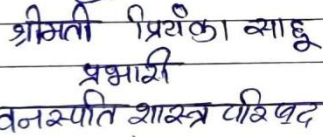 श्रीमती प्रियंका साहू
प्रभारी
वनस्पति शास्त्र परिषद